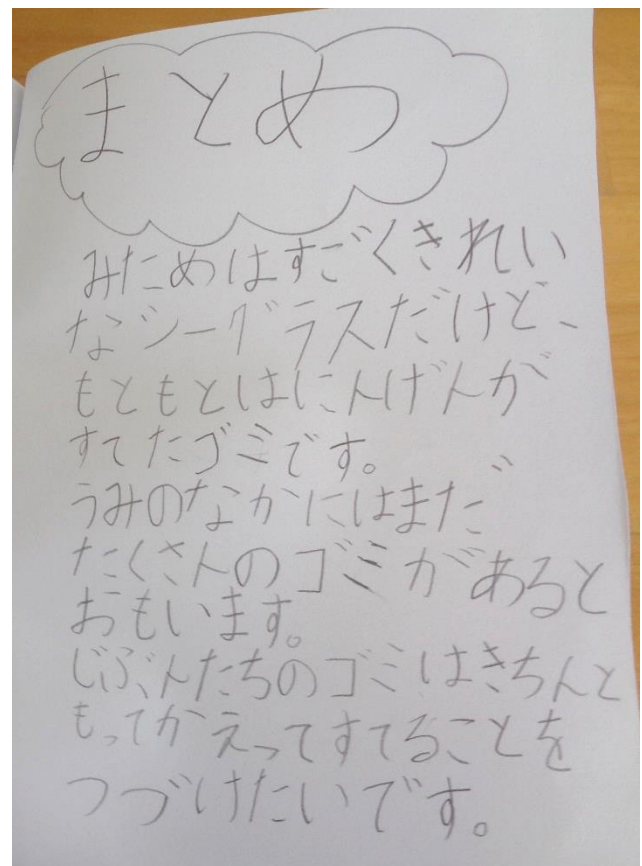 まとめ
みためはすごくきれい
なシーグラスだけど、
もともとはにんげんが
すてたゴミです。
うみのなかにはまだ
たくさんのゴミがあると
おもいます。
じぶんたちのゴミはきちんと
もってかえってすてることを
つづけたいです。